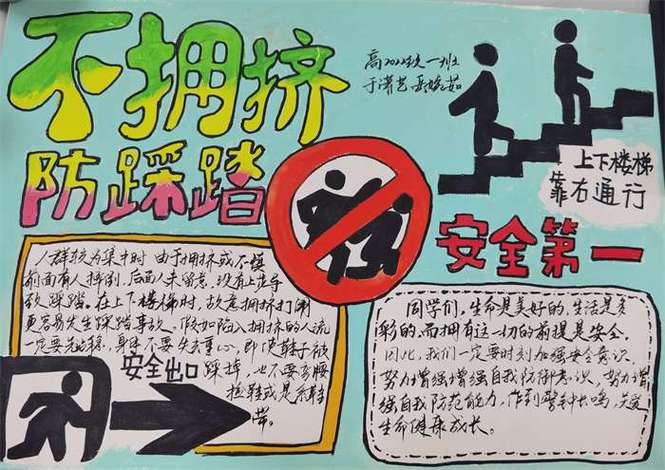 不拥挤
防踩踏
高2022级一班
上下楼梯
靠右通行
安全第一
人群较为集中时 由于拥挤或不慎
前面有人摔倒,后面人未留意,没有止步导
致踩踏。在上下楼梯时,故意拥挤打闹
更容易发生踩踏事故。假如陷入拥挤的人流
一定要先站稳,身体不要失去重心,即使鞋子被
踩掉,也不要弯腰
捡鞋或是系鞋
带。
安全出口
同学们,生命是美好的,生活是多
彩的,而拥有这一切的前提是安全。
因此,我们一定要时刻加强安全意识,
努力增强增强自我防御意识,努力增
强自我防范能力,作到警钟长鸣,关爱
生命健康成长。